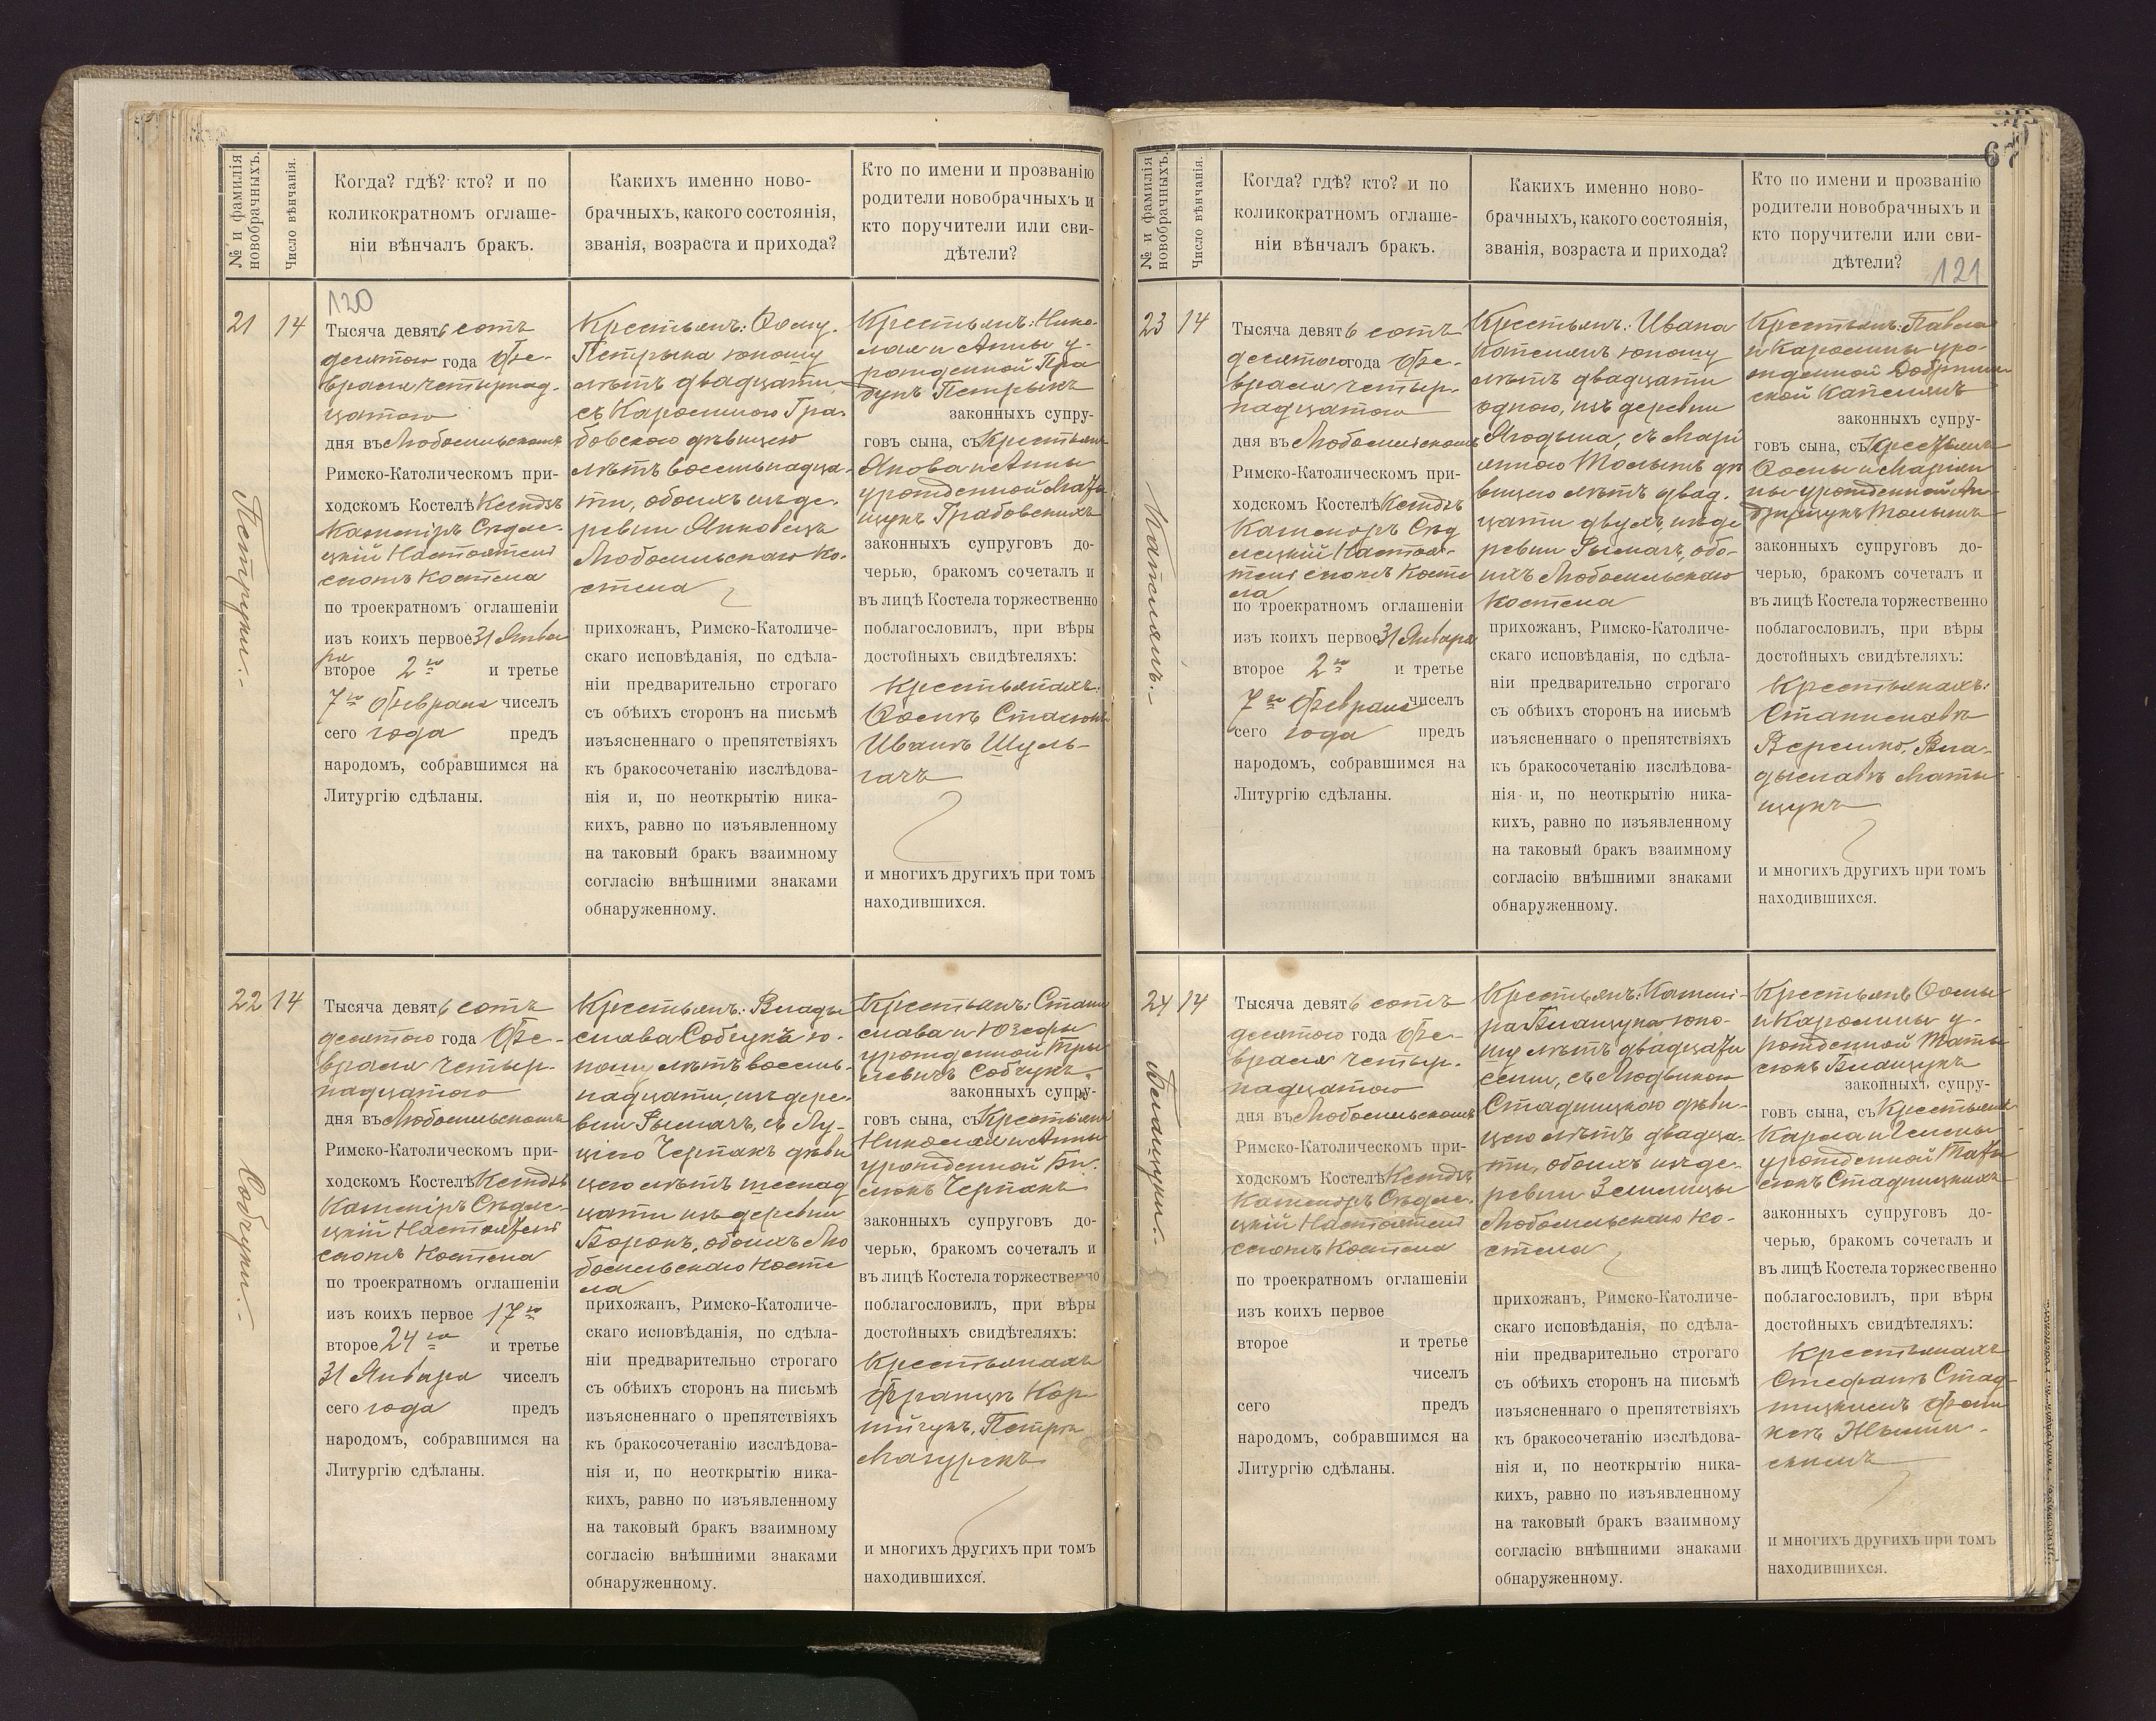 № и фамилія новобрачныхъ.
Число вѣнчанія.
Когда? гдѣ? кто? и по
коликократномъ оглаше-
ніи вѣнчалъ бракъ.
Какихъ именно ново-
брачныхъ, какого состоянія,
званія, возраста и прихода?
Кто по имени и прозванію
родители новобрачныхъ и
кто поручители или сви-
дѣтели?
21
14
Петруки.
120
Тысяча девятьсотъ
десятого года Фе-
враля четырнад-
цатого
дня въ Любомльскомъ
Римско-Католическомъ при-
ходскомъ Костелѣ Ксендзъ
Казиміръ Сѣдле-
цкій Настоятель
сномъ Костела
по троекратномъ оглашеніи
изъ коихъ первое 31 Янва
ря
второе 2го и третье
7го Февраля чиселъ
сего года предъ
народомъ, собравшимся на
Литургію сдѣланы.
Крестьянъ: Фому
Петрука юношу
лѣтъ двадцати
съ Каролиною Гра-
бовскою дѣвицею
лѣтъ восемьнадца-
ти, обоихъ изъ де-
ревни Янковецъ
Любомльскаго Ко-
стела
прихожанъ, Римско-Католиче-
скаго исповѣданія, по сдѣла-
ніи предварительно строгаго
съ обѣихъ сторонъ на письмѣ
изъясненнаго о препятствіяхъ
къ бракосочетанію изслѣдова-
нія и, по неоткрытію ника-
кихъ, равно по изъявленному
на таковый бракъ взаимному
согласію внѣшними знаками
обнаруженному.
Крестьянъ: Нико-
лая и Анны у-
рожденной
законныхъ супру-
говъ сына, съ Крестьянъ
Якова и Анны
урожденной
Грабовскихъ
законныхъ супруговъ до-
черью, бракомъ сочеталъ и
въ лицѣ Костела торжественно
поблагословилъ, при вѣры
достойныхъ свидѣтеляхъ:
Крестьянахъ:
Иванъ Шуль-
гачъ
и многихъ другихъ при томъ
находившихся.
22
14
Собчуки.
Тысяча девятьсотъ
десятого года Фе-
враля четыр-
надцатого
дня въ Любомльскомъ
Римско-Католическомъ при-
ходскомъ Костелѣ Ксендзъ
Казиміръ Сѣдле-
цкій Настоятель
сномъ Костела
по троекратномъ оглашеніи
изъ коихъ первое 17го
второе 24го и третье
31 Января чиселъ
сего года предъ
народомъ, собравшимся на
Литургію сдѣланы.
Крестьянъ: Влады
слава Собчукъ ю-
ношу лѣтъ восемь-
надцати, изъ дере-
вни Рымачъ, съ Лу-
ціею Черпакъ дѣви
цею лѣтъ шеснад
цати изъ деревни
Борокъ, обоихъ Лю
бомльскаго Косте
ла
прихожанъ, Римско-Католиче-
скаго исповѣданія, по сдѣла-
ніи предварительно строгаго
съ обѣихъ сторонъ на письмѣ
изъясненнаго о препятствіяхъ
къ бракосочетанію изслѣдова-
нія и, по неоткрытію ника-
кихъ, равно по изъявленному
на таковый бракъ взаимному
согласію внѣшними знаками
обнаруженному.
Крестьянъ: Стани
слава и Юзефы
урожденной
Собчукъ
законныхъ супру-
говъ сына, съ Крестьянъ
Николая и Анны
урожденной
Черпакъ
законныхъ супруговъ до-
черью, бракомъ сочеталъ и
въ лицѣ Костела торжественно
поблагословилъ, при вѣры
достойныхъ свидѣтеляхъ:
Крестьянахъ
Францъ Кор
нійчукъ, Петръ
Мазурекъ
и многихъ другихъ при томъ
находившихся.
67
№ и фамилія новобрачныхъ.
Число вѣнчанія.
Когда? гдѣ? кто? и по
коликократномъ оглаше-
ніи вѣнчалъ бракъ.
Какихъ именно ново-
брачныхъ, какого состоянія,
званія, возраста и прихода?
Кто по имени и прозванію
родители новобрачныхъ и
кто поручители или сви-
дѣтели?
121
23
14
Капелянъ.
Тысяча девятьсотъ
десятого года Фе-
враля четыр-
надцатого
дня въ Любомльскомъ
Римско-Католическомъ при-
ходскомъ Костелѣ Ксендзъ
Казиміръ Сѣд
лецкій Настоя-
тель сномъ Косте
ла
по троекратномъ оглашеніи
изъ коихъ первое 31 Января
второе 2го и третье
7го Февраля чиселъ
сего года предъ
народомъ, собравшимся на
Литургію сдѣланы.
Крестьянъ: Ивана
Капелянъ юношу
лѣтъ двадцати
одного, изъ деревни
Ягодына, съ Марі
янною дѣ
вицею лѣтъ двад-
цати двухъ, изъ де
ревни Рымачъ, обо-
ихъ Любомльскаго
Костела
прихожанъ, Римско-Католиче-
скаго исповѣданія, по сдѣла-
ніи предварительно строгаго
съ обѣихъ сторонъ на письмѣ
изъясненнаго о препятствіяхъ
къ бракосочетанію изслѣдова-
нія и, по неоткрытію ника-
кихъ, равно по изъявленному
на таковый бракъ взаимному
согласію внѣшними знаками
обнаруженному.
Крестьянъ: Павла
и Каролины уро-
жденной Добржин-
ской Капелянъ
законныхъ супру-
говъ сына, съ Крестьянъ
Осипа и Маріян
ны урожденной Ан-
законныхъ супруговъ до-
черью, бракомъ сочеталъ и
въ лицѣ Костела торжественно
поблагословилъ, при вѣры
достойныхъ свидѣтеляхъ:
Крестьянахъ:
Станиславъ
Верешко, Вла-
дыславъ Маты
щукъ
и многихъ другихъ при томъ
находившихся.
24
14
Влащуки.
Тысяча девятьсотъ
десятого года Фе-
враля четыр-
надцатого
дня въ Любомльскомъ
Римско-Католическомъ при-
ходскомъ Костелѣ Ксендзъ
Казиміръ Сѣдле-
цкій Настоятель
сномъ Костела
по троекратномъ оглашеніи
изъ коихъ первое
второе и третье
чиселъ
сего предъ
народомъ, собравшимся на
Литургію сдѣланы.
Крестьянъ: Казимі-
ра Влащука юно-
шу лѣтъ двадцати
семи, съ Людвикою
Стадницкою дѣви-
цею лѣтъ двадца-
ти, обоихъ изъ де-
ревни Землицы
Любомльскаго Ко-
стела
прихожанъ, Римско-Католиче-
скаго исповѣданія, по сдѣла-
ніи предварительно строгаго
съ обѣихъ сторонъ на письмѣ
изъясненнаго о препятствіяхъ
къ бракосочетанію изслѣдова-
нія и, по неоткрытію ника-
кихъ, равно по изъявленному
на таковый бракъ взаимному
согласію внѣшними знаками
обнаруженному.
Крестьянъ Осипа
и Каролины у-
рожденной
Влащукъ
законныхъ супру-
говъ сына, съ Крестьянъ
Карла и Гелены
урожденной
Стадницкихъ
законныхъ супруговъ до-
черью, бракомъ сочеталъ и
въ лицѣ Костела торжественно
поблагословилъ, при вѣры
достойныхъ свидѣтеляхъ:
Крестьянахъ
Стефанъ Стад-
ницкимъ
и многихъ другихъ при томъ
находившихся.